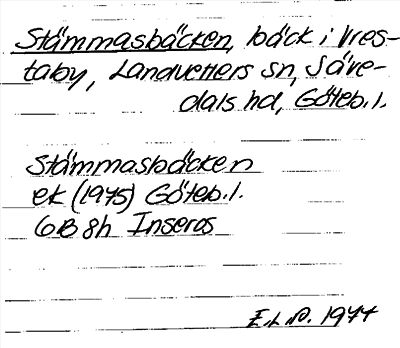 Stämmasbäcken, bäck i Vres-
taby, Landvetters sn, Säve-
dals hd, Göteb. l.
Stämmasbäcken
ek (1975) Göteb. l.
6B 8h Inseros
1977